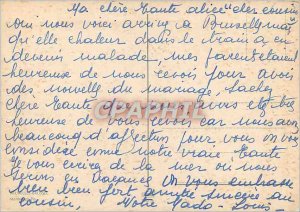 Ma chère Tante alice cher cousin
nous voici arrivé a Bruxelles mais
qu'elle chaleur dans le train a en
devenir malade, mes parents étaient
heureuse de nous revoir pour avoir
des nouvelle du mariage, sachez
chère Tante
heureuse de vous revoir car nous avons
beaucoup d'affection pour vous on vous
considère comme notre vraie Tante
Je vous écrirez de la mer ou nous
serons en vacances On vous embrasse
bien bien fort
cousin, Votre Mado - Louis -
CPAPHIL